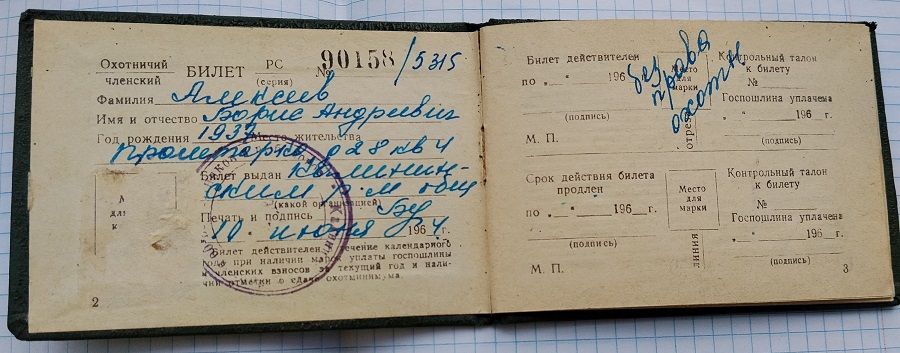 Охотничий
членский БИЛЕТ РС (серия) № 90158/5315
Фамилия Алексеев
Имя и отчество Борис Андреевич
Год рождения 1937 Место жительства
д 28 кв 4
Билет выдан Калинин-
ским р. м общ
(какой организацией)
Печать и подпись
10 июня 196 г.
Билет действителен в течение календарного
года при наличии марок уплаты госпошлины
и членских взносов за текущий год и нали-
чии отметки о сдаче охотминимума.
2
Билет действителен
по „ " 196
(подпись)
М. П.
Место
для
марки
отрез
без
права
охоты
Контрольный талон
к билету
№
Госпошлина уплачена
„ " 196 г.
(подпись)
Срок действия билета
продлен
по „ " 196 г.
(подпись)
М. П.
Место
для
марки
линия
Контрольный талон
к билету
№
Госпошлина уплачена
„ " 196 г.
(подпись)
3